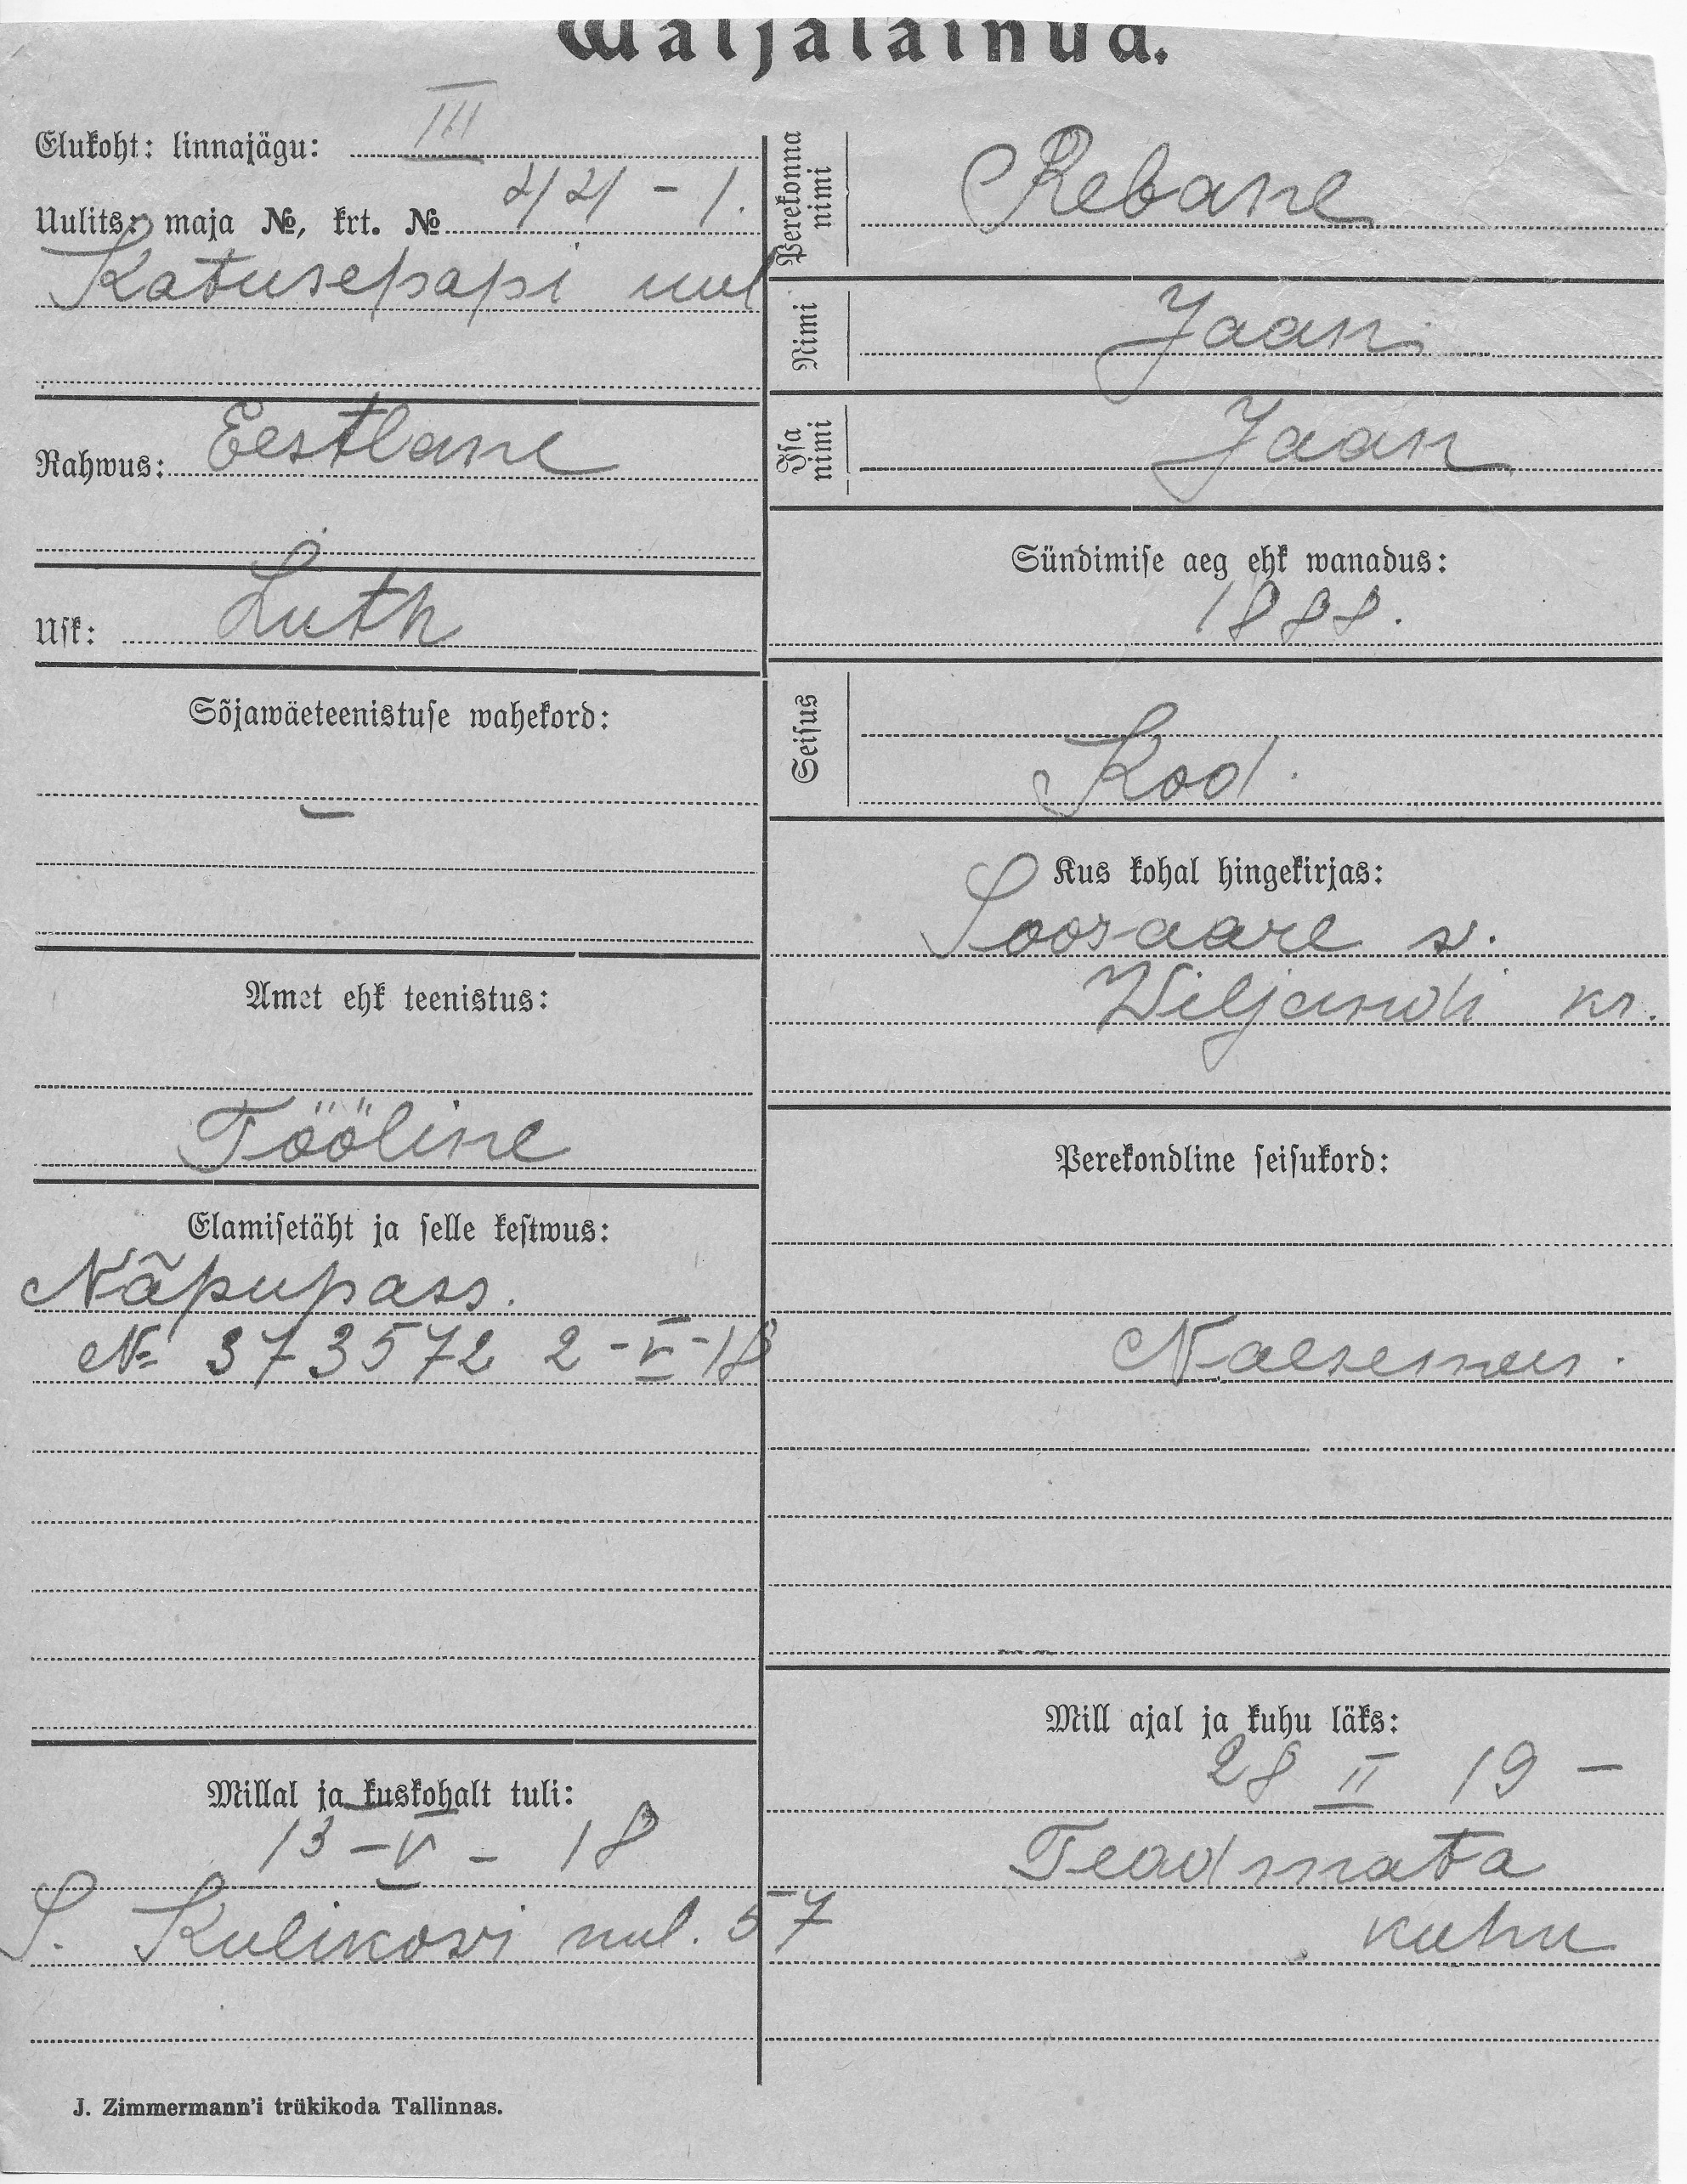 Wäljaläinud.
Elukoht: linnajägu: III
Uulits, maja №, krt. № 44 - 1.
Katusepapi uul
Rahwus: Eestlane
Usk: Luth
Sõjawäeteenistuse wahekord:
—
Amet ehk teenistus:
Tööline
Elamisetäht ja selle kestwus:
Näpupass.
№ 373572 2-V-18
Millal ja kuskohalt tuli:
13-V-18
S. Kulikovi uul. 57
J. Zimmermann'i trükikoda Tallinnas.
Perekonna nimi Rebane
Nimi Jaan
Isa nimi Jaan
Sündimise aeg ehk wanadus:
1888.
Seisus
Kod.
Kus kohal hingekirjas:
Soosaare v.
Wiljandi kr.
Perekondline seisukord:
Naesemees.
Mill ajal ja kuhu läks:
28 II 19 —
Teadmata
kuhu